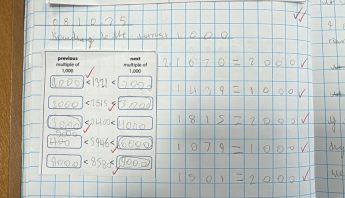 08.10.25
Rounding to the nearest 1,000
previous multiple of 1,000
next multiple of 1,000
1000 < 1321 < 2000
2000 < 2615 < 3000
< 3400 < 4000
5000 < 5946 < 6000
8000 < 8580 < 9000
2) 1670 = 2000
1439 = 1000
1815 = 2000
1079 = 1000
1501 = 2000